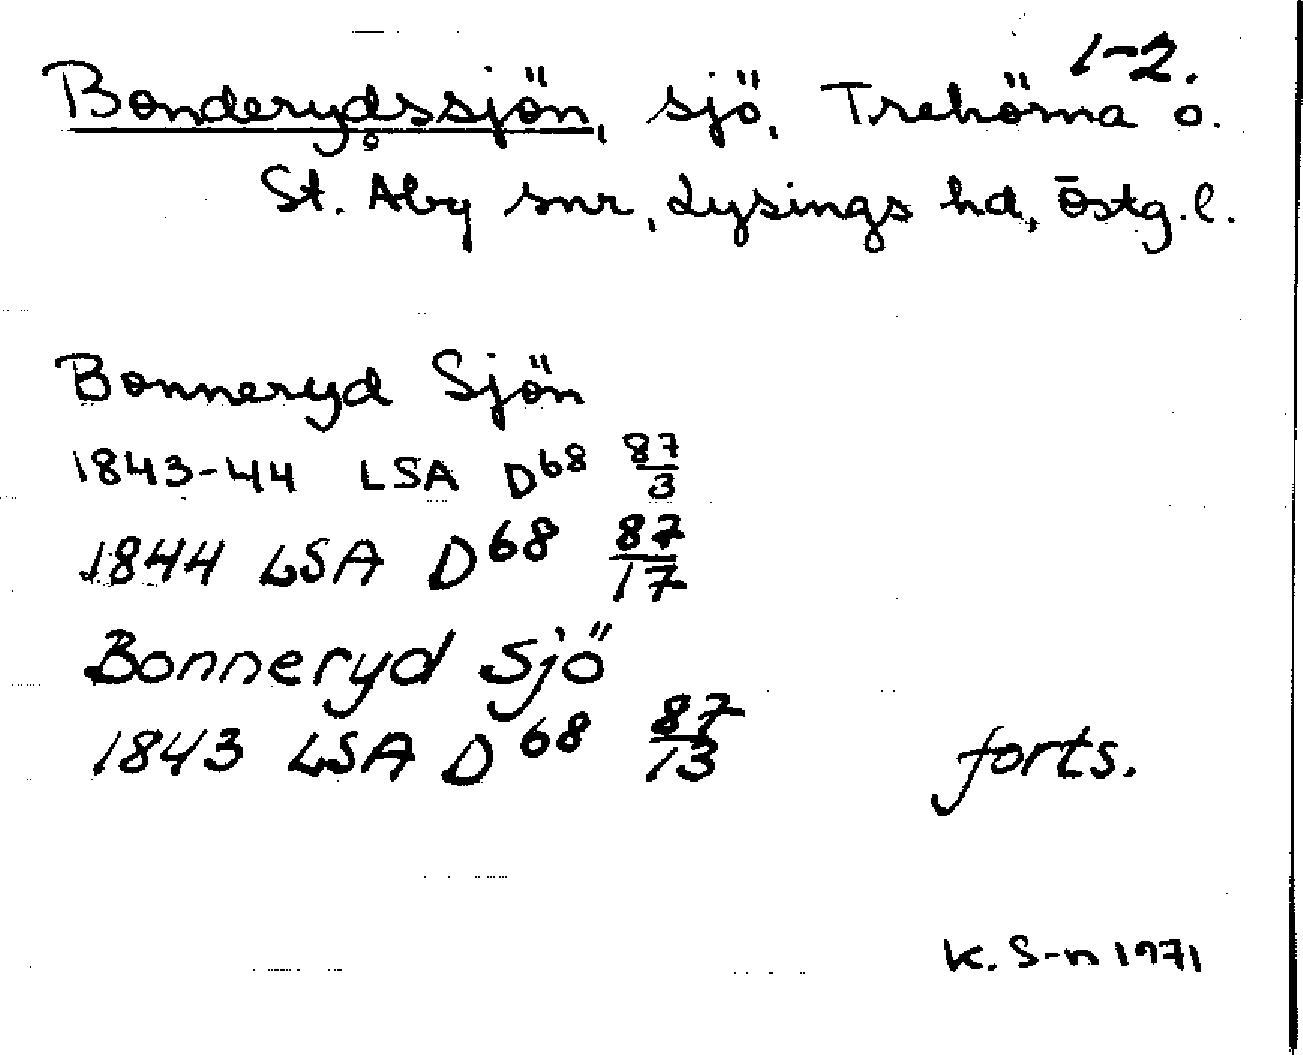 1-2.
Bonderydssjön, sjö, Trehörna o.
St. Åby snr, Lysings hd, Östg.l.
Bonneryd Sjön
1843-44 LSA D68 87/3
1844 LSA D68 87/17
Bonneryd Sjö
1843 LSA D68 87/13
forts.
K. S-n 1971